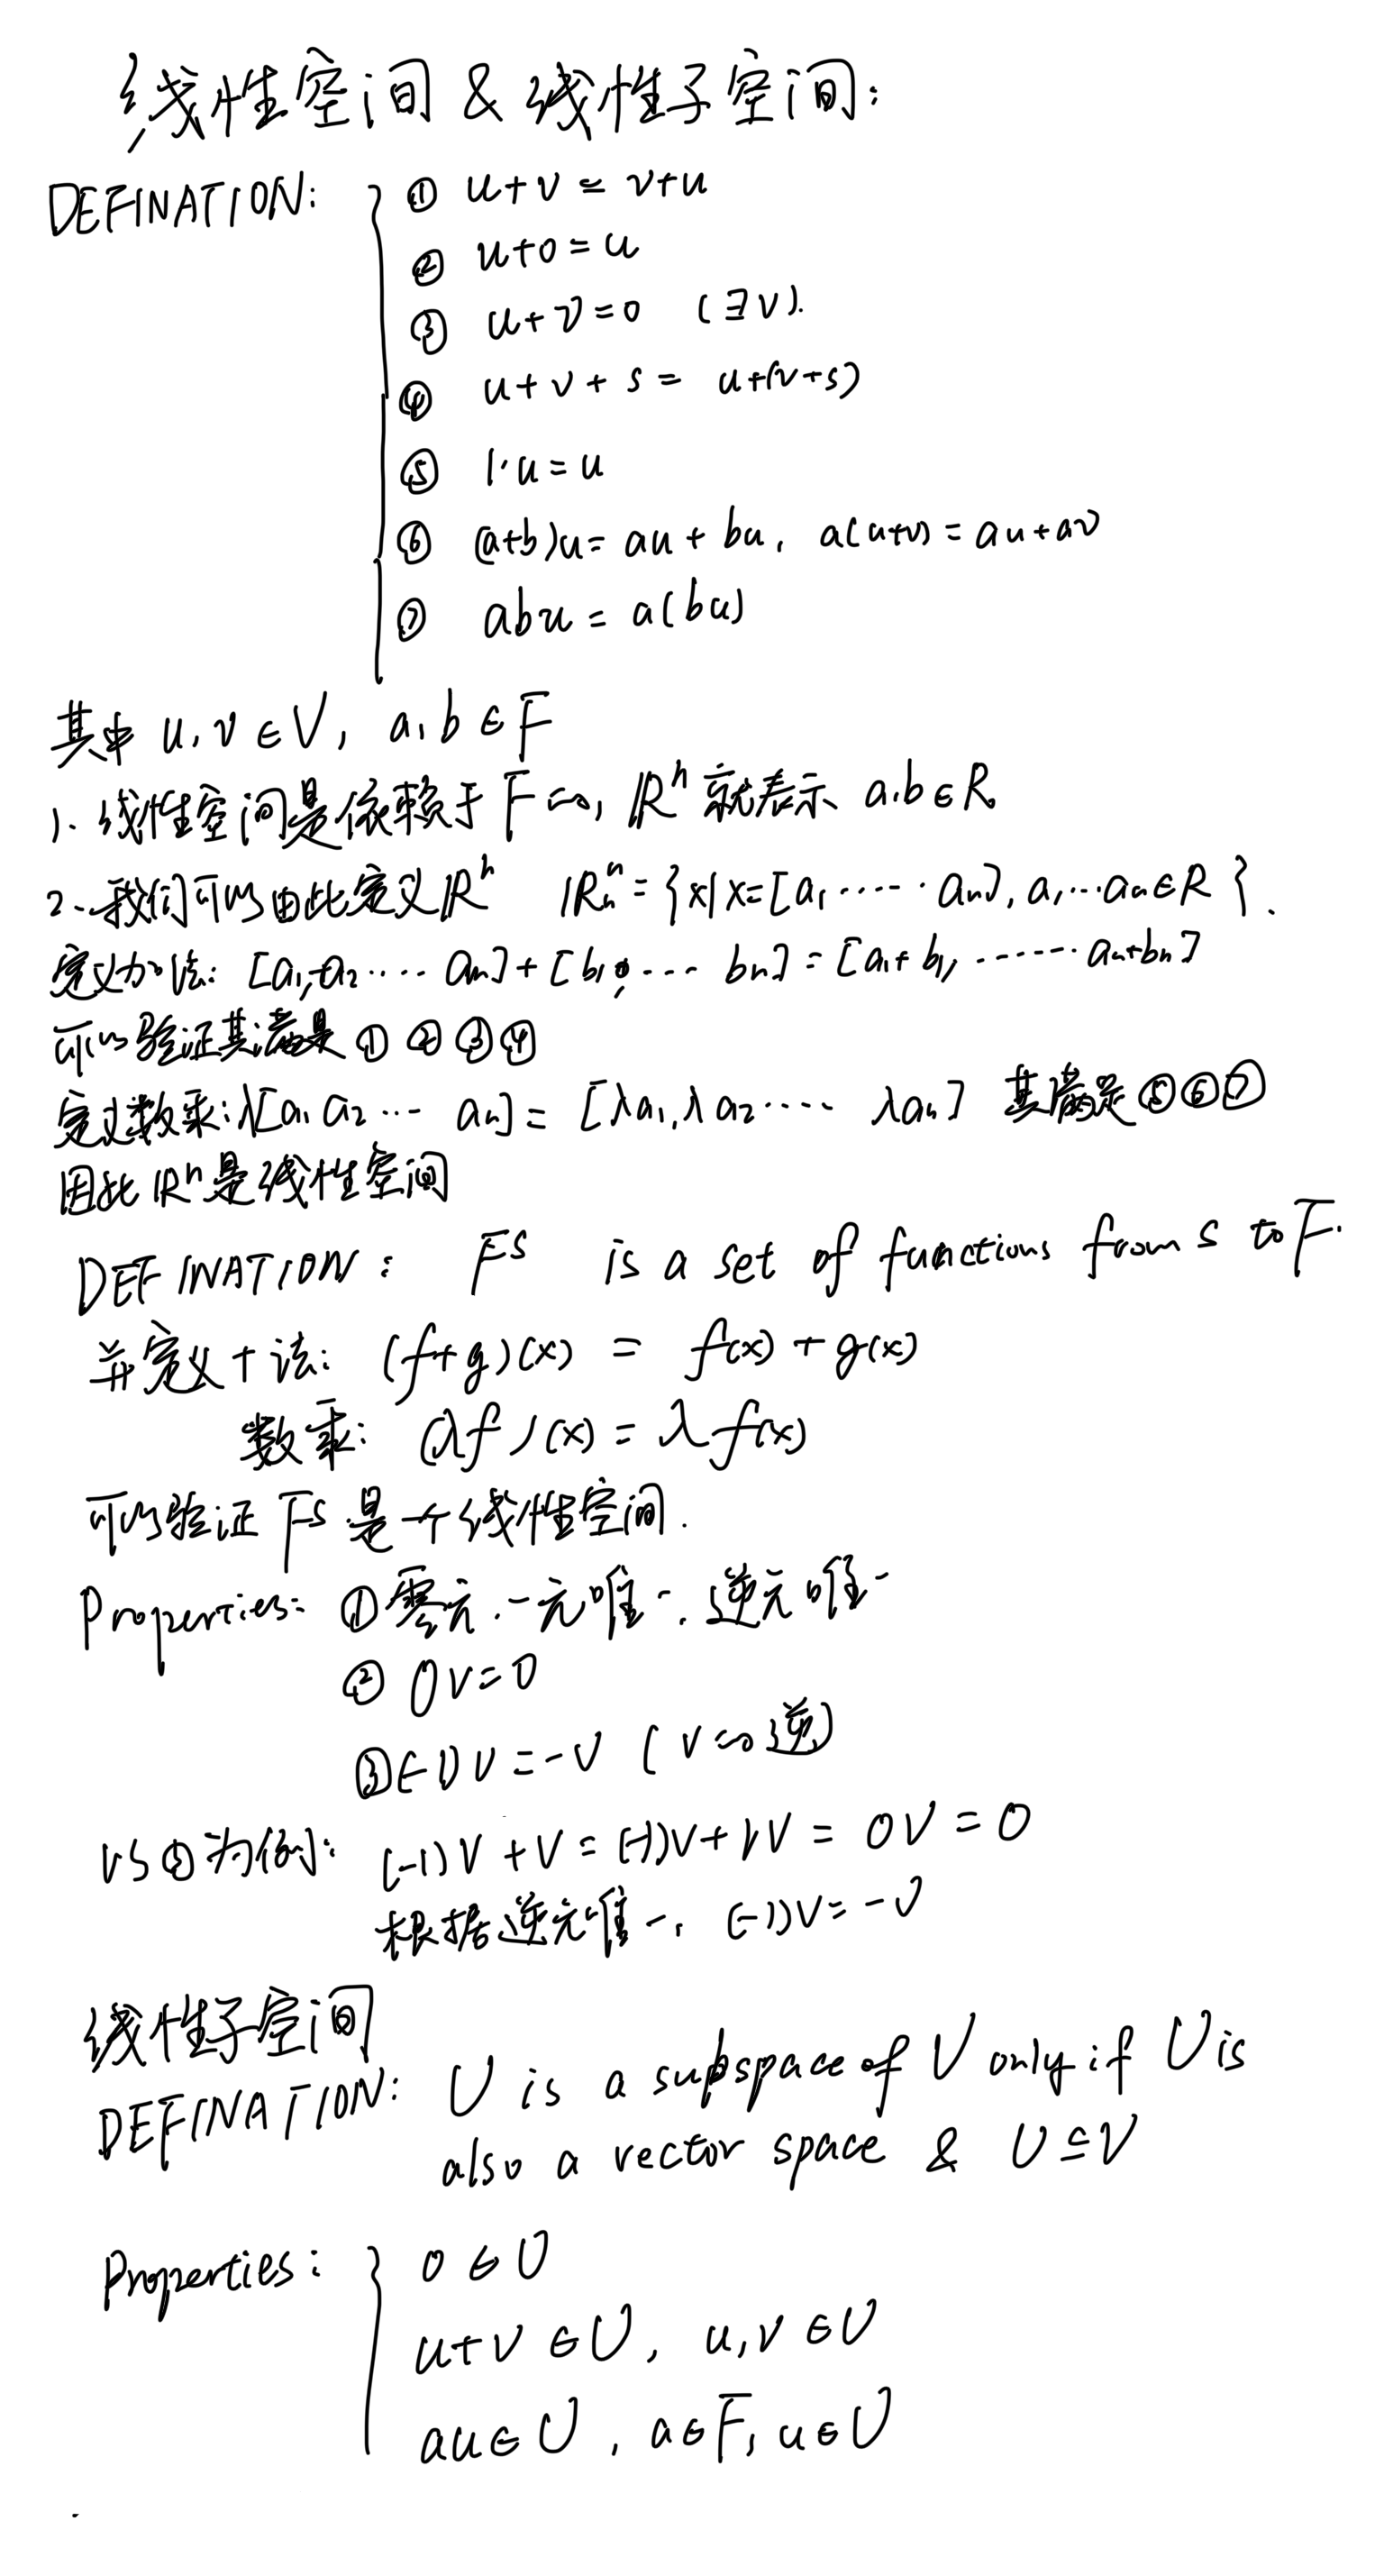 线性空间 & 线性子空间:
DEFINATION:
① u+v = v+u
② u+0 = u
③ u+v=0 (∃v).
④ u+v+s = u+(v+s)
⑤ 1·u=u
⑥ (a+b)u= au + bu, a(u+v) = au+av
⑦ abu = a(bu)
其中 u, v ∈ V, a, b ∈ F
1. 线性空间是依赖于 F 的, ℝⁿ 就表示 a.b ∈ R
2. 我们可以由此定义ℝⁿ ℝⁿ = { x | x=[a₁ ······ aₙ], a₁···aₙ ∈ R }.
定义加法: [a₁, a₂ ···· aₙ] + [b₁, ···· bₙ] = [a₁+b₁, ······ aₙ+bₙ]
可以验证其满足 ① ② ③ ④
定义数乘: λ[a₁ a₂ ··· aₙ] = [λa₁, λa₂ ····· λaₙ] 其满足 ⑤ ⑥ ⑦
因此 ℝⁿ 是线性空间
DEFINATION: Fˢ is a set of functions from S to F.
并定义+法: (f+g)(x) = f(x) + g(x)
数乘: (λf)(x) = λf(x)
可以验证 Fˢ 是一个线性空间.
Properties: ①零元.一元唯一. 逆元唯一
② 0v=0
③ (-1)v = -v (v的逆)
以③为例: (-1)v + v = (-1)v + 1v = 0v = 0
根据逆元唯一, (-1)v = -v
线性子空间
DEFINATION: U is a subspace of V only if U is
also a vector space & U ⊆ V
Properties:
0 ∈ U
u+v ∈ U, u, v ∈ U
au ∈ U, a ∈ F, u ∈ U